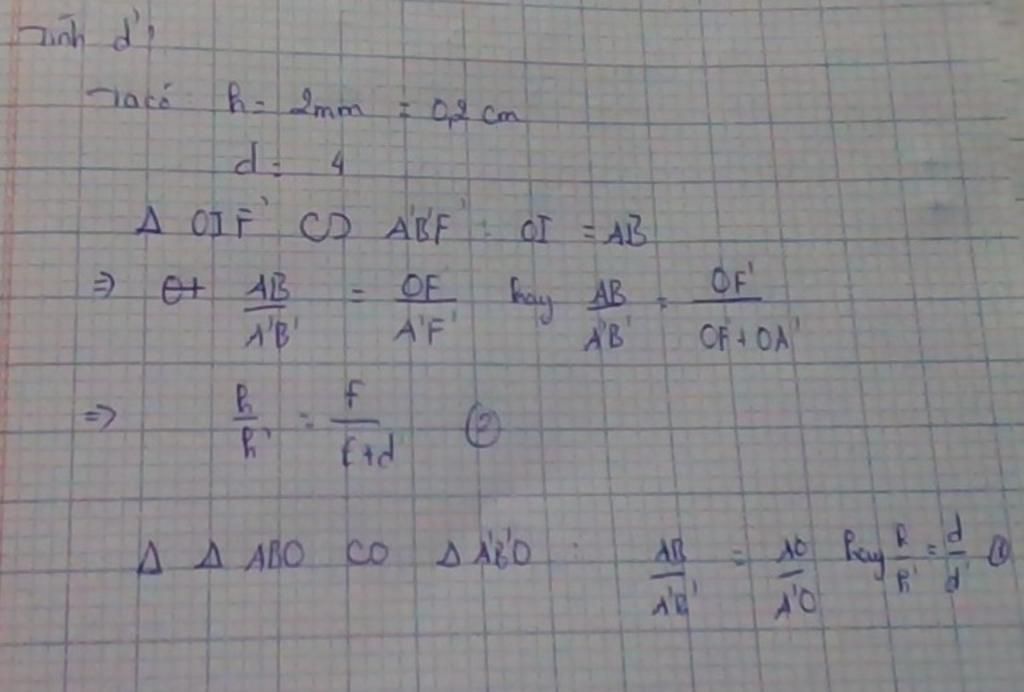 Tính d'?
Ta có: h = 2mm = 0,2 cm
d = 4
Δ OIF' ∽ A'B'F' : OI = AB
⇒ AB/A'B' = OF/A'F' hay AB/A'B' = OF'/OF+OA'
⇒ h/h' = f/f+d ②
Δ Δ ABO ∽ Δ A'B'O : AB/A'B' = AO/A'O hay h/h' = d/d' ①